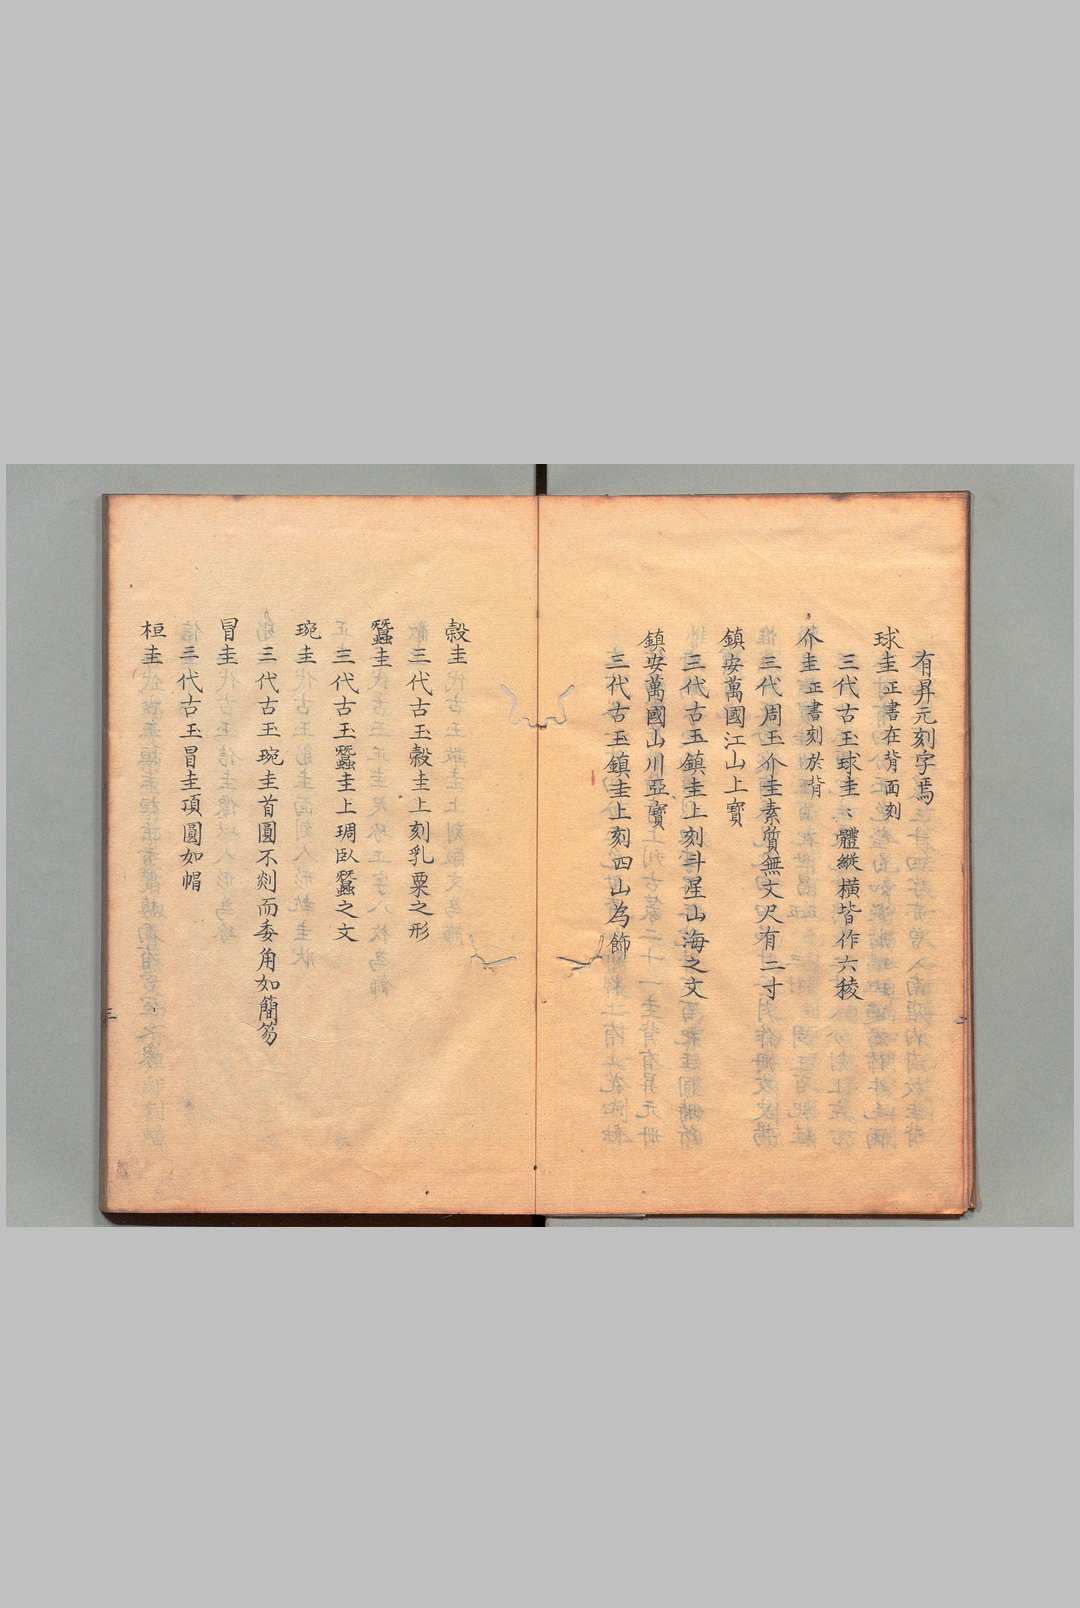 有昇元刻字焉
球圭正書在背面刻
三代古玉球圭：體縱橫皆作六稜
介圭正書刻於背
三代周王介圭素質無文尺有二寸
鎮安萬國江山上寳
三代古玉鎮圭上刻斗星山海之文
鎮安萬國山川亞寳
三代古玉鎮圭上刻四山為飾
榖圭
三代古玉榖圭上刻乳粟之形
蠶圭
三代古玉蠶圭上琱臥蠶之文
琬圭
三代古玉琬圭首圓不剡而委角如簡笏
冒圭
三代古玉冒圭項圓如帽
桓圭
二
三